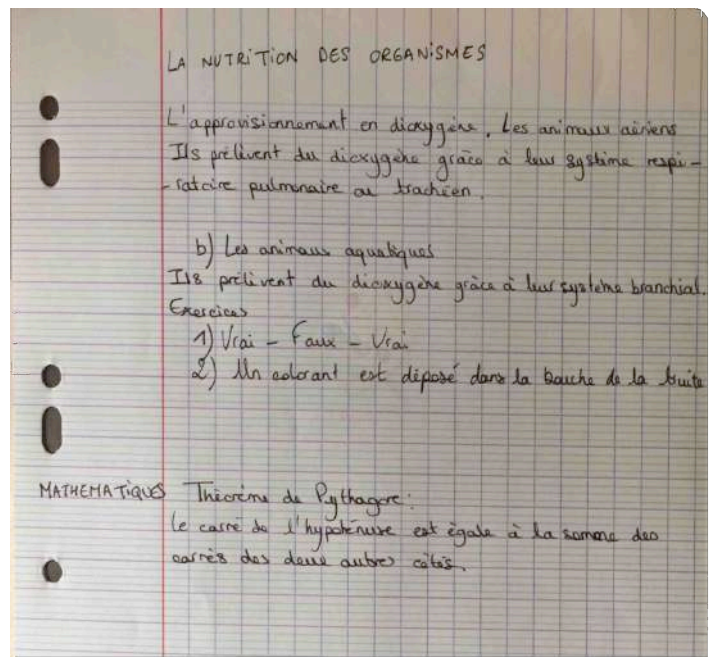 LA NUTRITION DES ORGANISMES
L'approvisionnement en dioxygène. Les animaux aériens
Ils prélèvent du dioxygène grâce à leur système respi-
-ratoire pulmonaire ou trachéen.
b) Les animaux aquatiques
Ils prélèvent du dioxygène grâce à leur système branchial.
Exercices
1) Vrai - Faux - Vrai
2) Un colorant est déposé dans la bouche de la truite
MATHEMATIQUES Théorème de Pythagore:
le carré de l'hypoténuse est égale à la somme des
carrés des deux autres côtés.